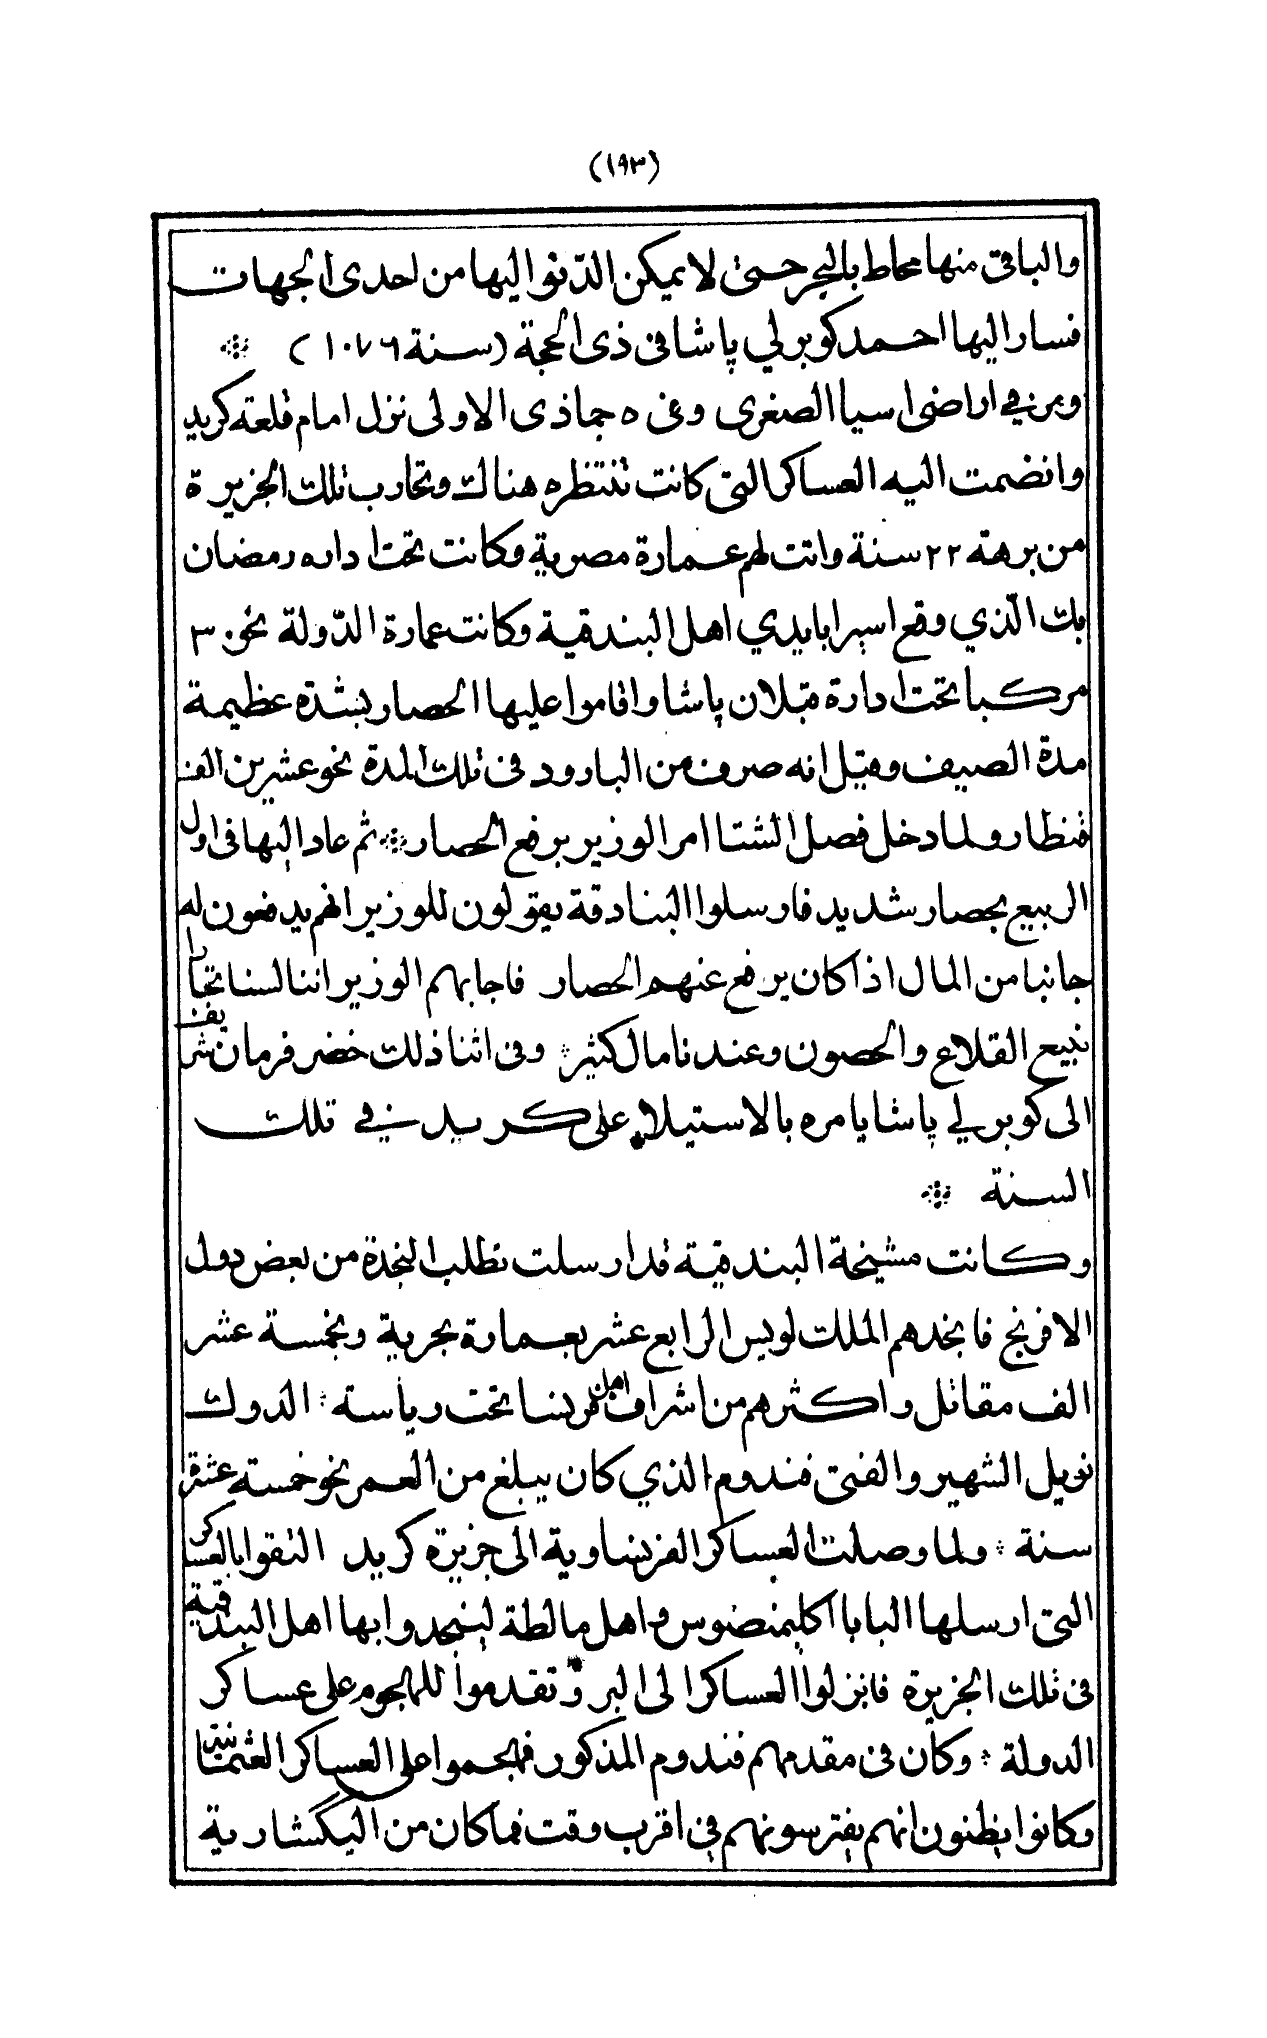 (١٩٣)
والباقى منها محاط بالبحر حتى لا يمكن الدّنو اليها من احدى الجهات
فسار اليها احمد كوبرلي پاشا فى ذى الحجة (سنة ١٠٧٦) ❊
ومرّ في اراضى اسيا الصغرى وفى ٥ جماذى الاولى نزل امام قلعة كريد
وانضمت اليه العساكر التى كانت تنتظره هناك وتحارب تلك الجزيرة
من برهة ٢٢ سنة واتت لهم عمارة مصرية وكانت تحت اداره رمضان
بك الّذي وقع اسيرا بايدي اهل البندقية وكانت عمارة الدّولة نحو ٣٠
مركبا تحت ادارة قبلان پاشا واقاموا عليها الحصار بشدّة عظيمة
مدة الصيف وقيل انه صرف من البارود فى تلك المدة نحو عشرين الف
قنطار ولما دخل فصل الشتا امر الوزير برفع الحصار ❊ ثم عاد اليها فى اول
الربيع بحصار شديد فارسلوا البنادقة يقولون للوزير انهم يدفعون له
جانبا من المال اذا كان يرفع عنهم الحصار فاجابهم الوزير اننا لسنا تجارا
نبيع القلاع والحصون وعندنا مال كثير ❊ وفى اثنا ذلك خضر فرمان شريف
الى كوبرلي پاشا يامره بالاستيلاء على كريد في تلك
السنة ❊
وكانت مشيخة البندقية قد ارسلت تطلب النجدة من بعض دول
الافرنج فانجدهم الملك لويس الرابع عشر بعمارة بحرية وبخمسة عشر
الف مقاتل واكثرهم من اشراف اهل فرنسا تحت رياسة ❊ الدوك
نويل الشهير والفتى فندوم الذي كان يبلغ من العمر نحو خمسة عشرة
سنة ❊ ولما وصلت العساكر الفرنساوية الى جزيرة كريد التقوا بالعساكر
التى ارسلها البابا اكليمنضوس واهل مالطة لينجدوا بها اهل البندقية
فى تلك الجزيرة فانزلوا العساكر الى البر وتقدموا للهجوم على عساكر
الدولة ❊ وكان فى مقدمهم فندوم المذكور فهجموا على العساكر العثمانية
وكانوا يظنون انهم يفترسونهم في اقرب وقت فما كان من اليكشارية